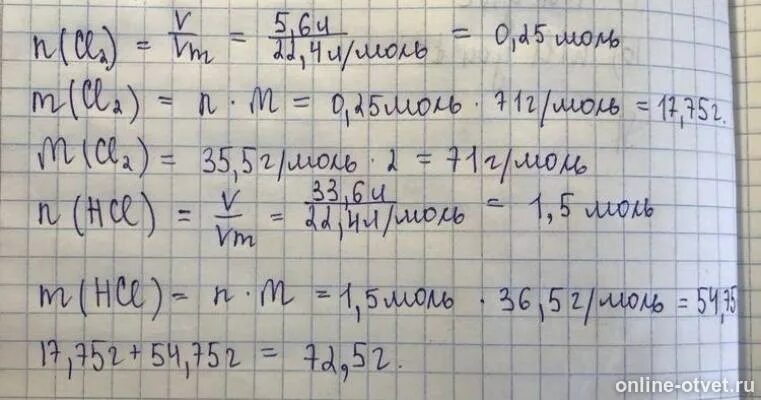 n(Cl₂) = V/Vm = 5,6л/22,4л/моль = 0,25 моль
m(Cl₂) = n · M = 0,25моль · 71г/моль = 17,75г.
M(Cl₂) = 35,5г/моль · 2 = 71г/моль
n(HCl) = V/Vm = 33,6л/22,4л/моль = 1,5 моль
m(HCl) = n · M = 1,5моль · 36,5г/моль = 54,75
17,75г + 54,75г = 72,5г.
online-otvet.ru